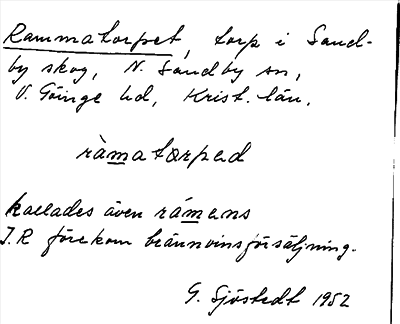 Rammatorpet, torp i Sand-
by skog, N. Sandby sn,
V. Göinge hd, Krist. län.
ràmatorpəd
kallades även rámens
I.R förekom brännvinsförsäljning.
G. Sjöstedt 1952